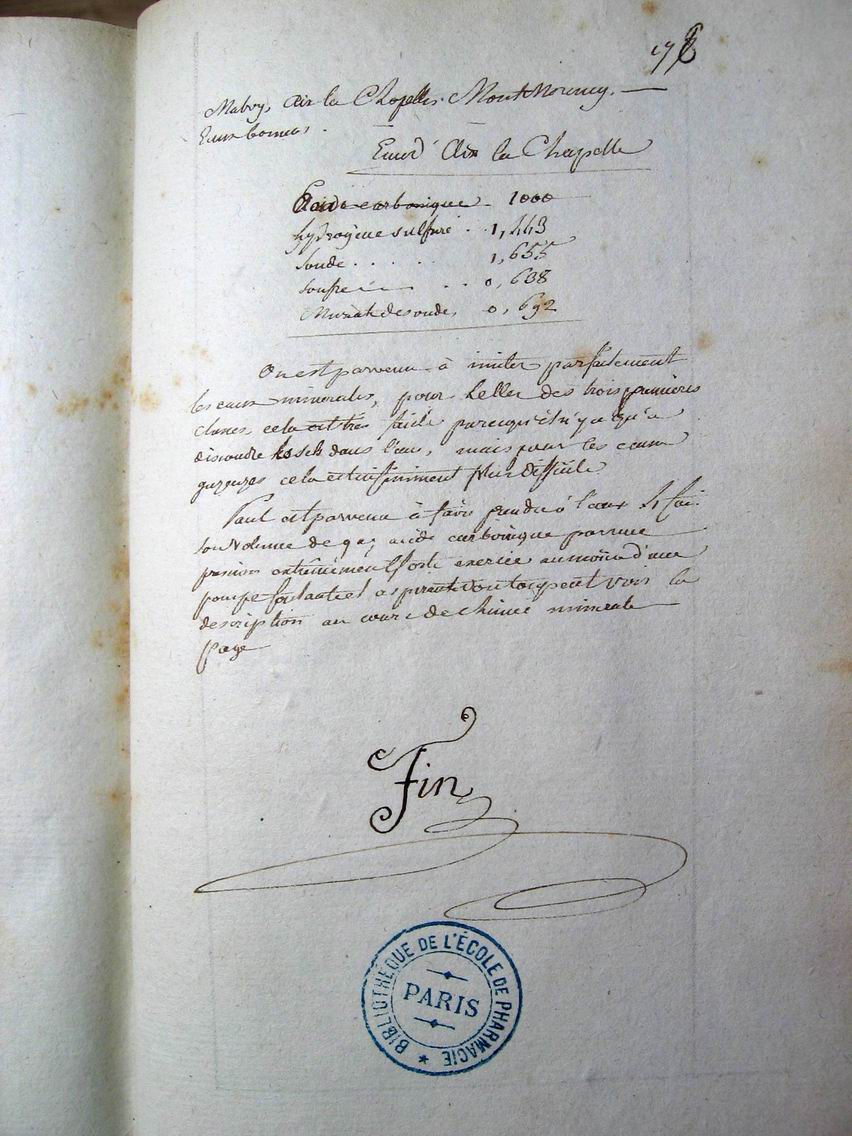 aix la Chapelle. Montmorency. —
Eaux bonnes.
Eau d'Aix la Chapelle
Acide carbonique - 1000
hydrogene sulfuré . . 1,443
soude . . . . 1,655
soufre . . 0,638
Muriate de soude, 0,692
On est parvenu à imiter parfaitement
les eaux minerales, pour celles des trois premieres
classes cela est très facile parcequ'il n'y a qu'a
dissoudre les sels dans l'eau, mais pour les eaux
gazeuzes cela est infiniment plus difficile
Paul est parvenu à faire prendre à l'eau
son volume de gaz acide carbonique par une
pression extrêmement forte exercée au moien d'une
pompe foulante et aspirante on peut voir la
description au cours de chimie minerale
page
Fin
BIBLIOTHÈQUE DE L'ÉCOLE DE PHARMACIE
PARIS